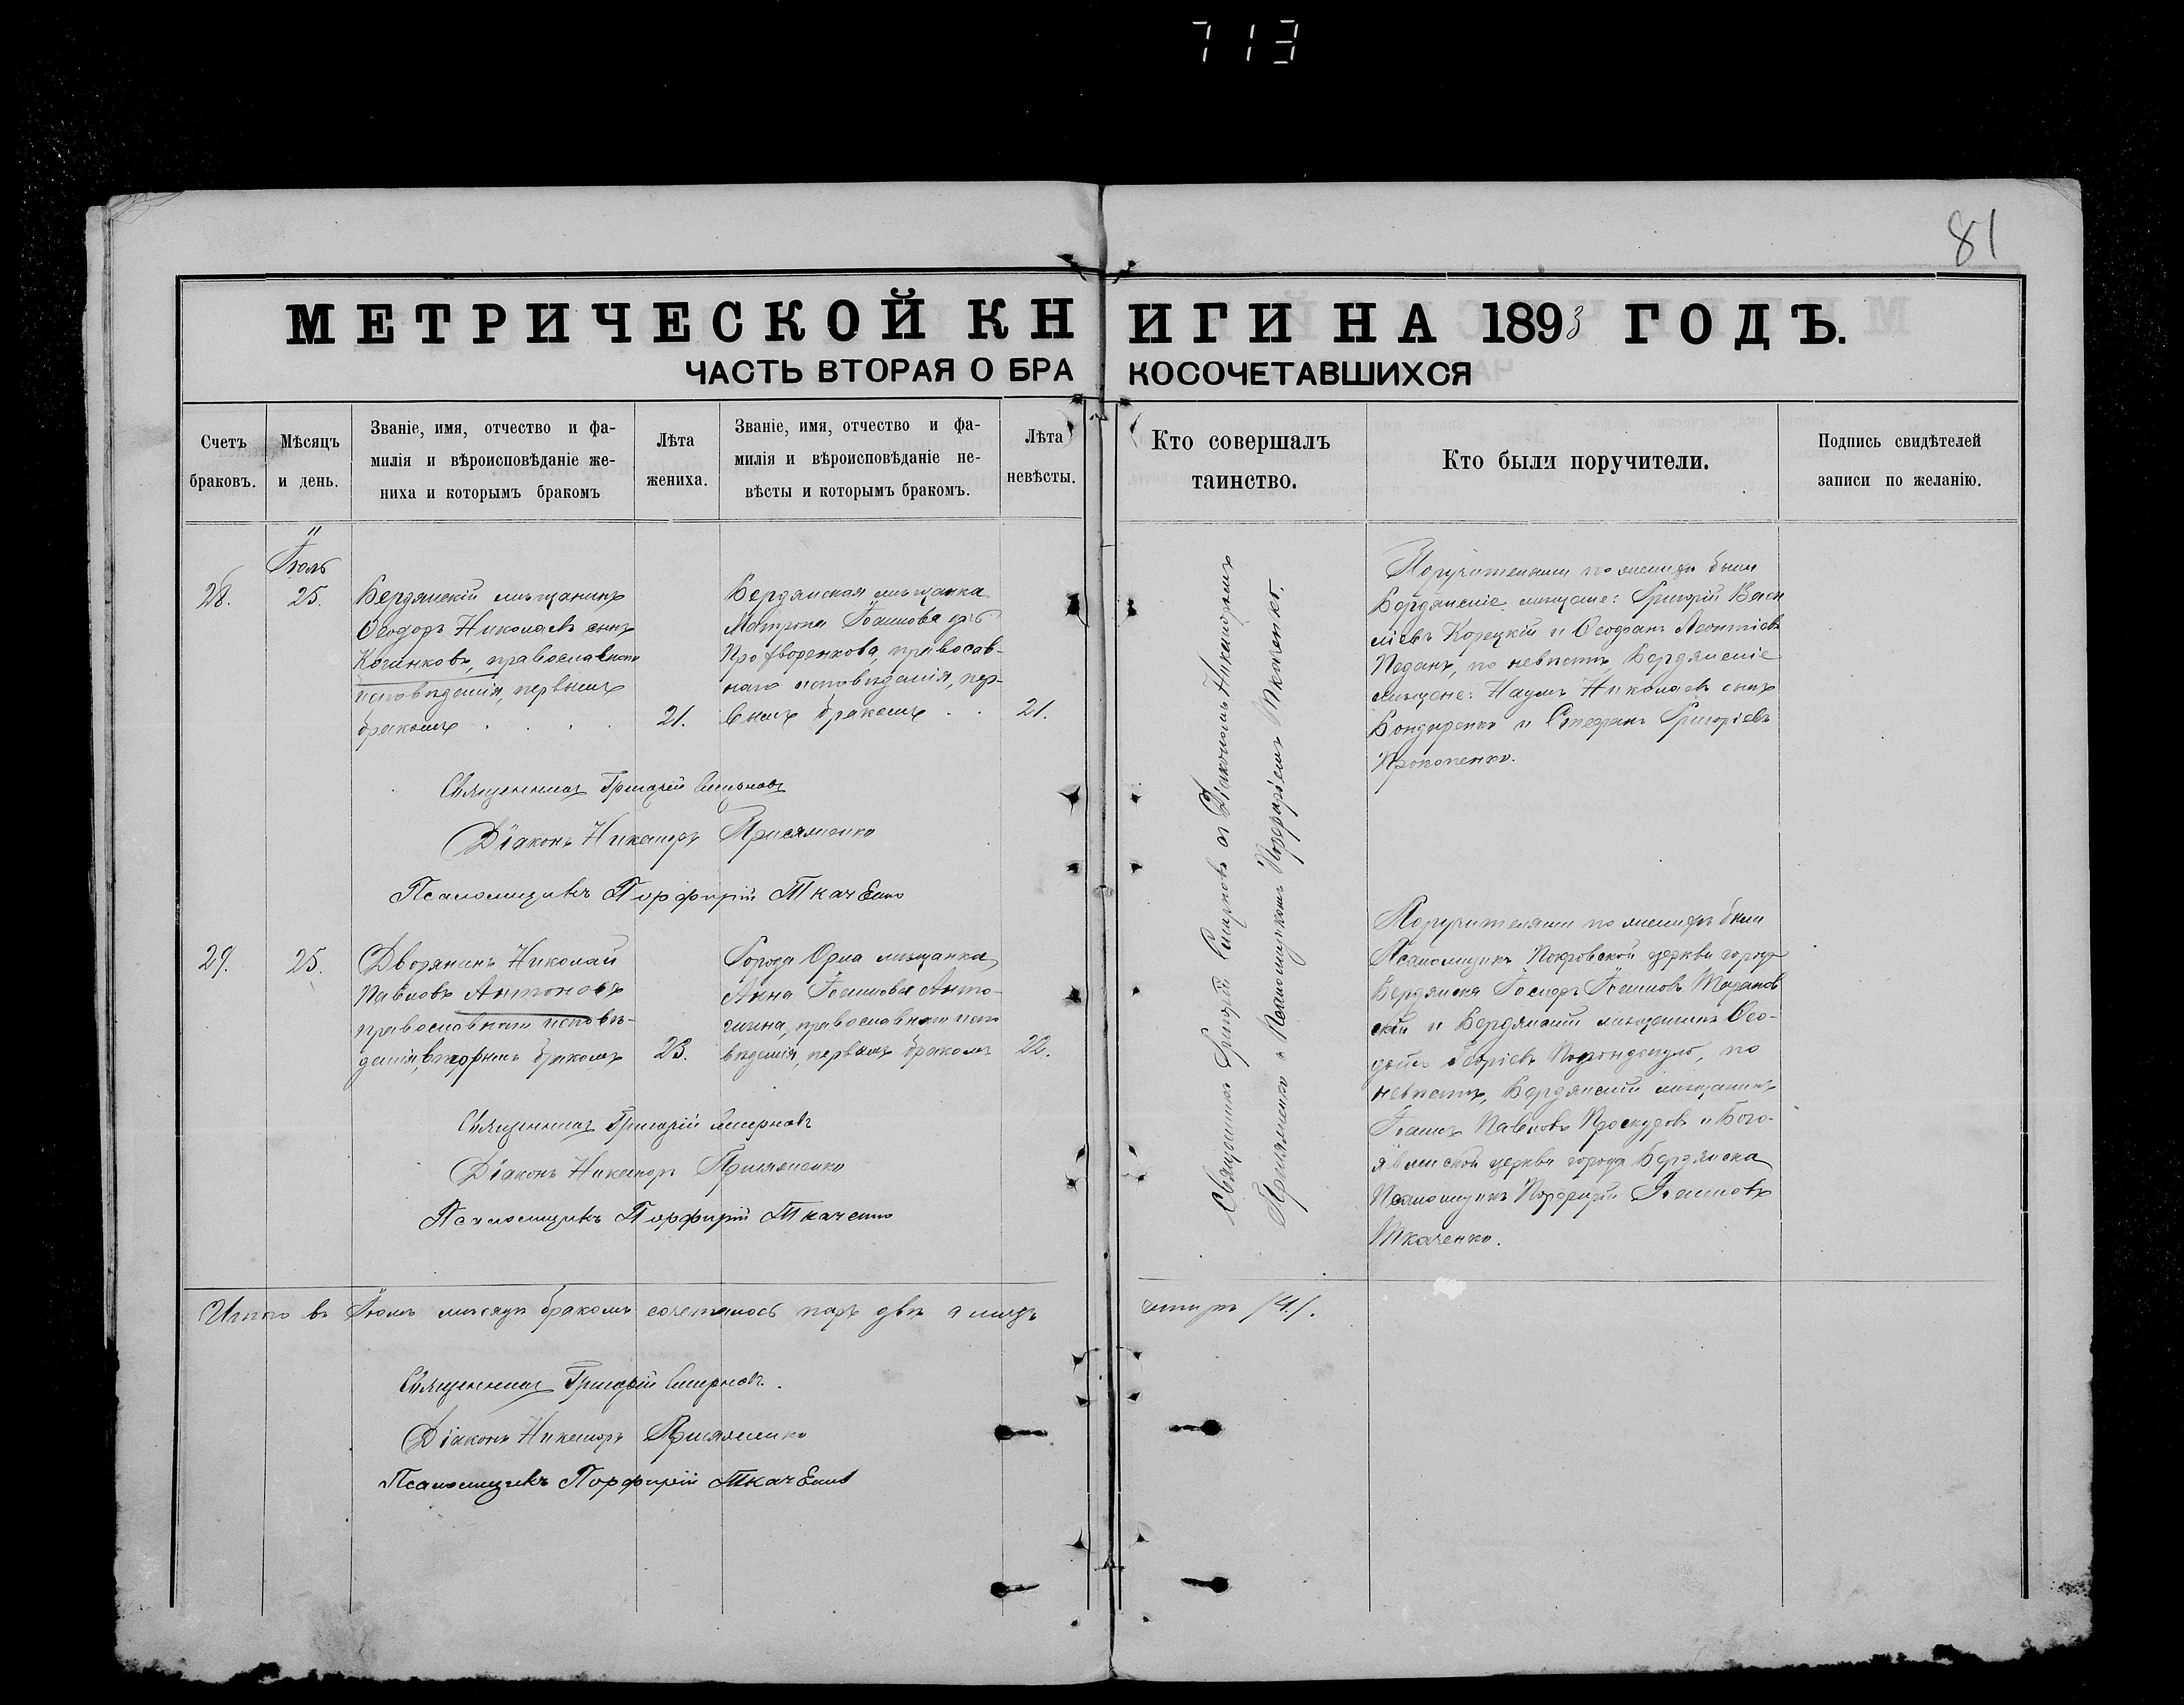 713
81
МЕТРИЧЕСКОЙ КНИГИ НА 1893 ГОДЪ.
ЧАСТЬ ВТОРАЯ О БРАКОСОЧЕТАВШИХСЯ
Счетъ
браковъ.
Мѣсяцъ
и день.
Званіе, имя, отчество и фа-
милія и вѣроисповѣданіе же-
ниха и которымъ бракомъ
Лѣта
жениха.
Званіе, имя, отчество и фа-
милія и вѣроисповѣданіе не-
вѣсты и которымъ бракомъ.
Лѣта
невѣсты.
Кто совершалъ
таинство.
Кто были поручители.
Подпись свидѣтелей
записи по желанію.
"
Іюль
28.
25.
Бердянскій мѣщанинъ
Ѳеодоръ Николаевъ сынъ
православнаго
исповѣданія, первымъ
бракомъ . . . .
21.
Бердянская мѣщанка
Матрона Іоаннова
православ-
наго исповѣданія, пер-
вымъ бракомъ . .
21.
Священникъ Григорій Смирновъ и Діаконъ Никаноръ
Присяженко и Псаломщикомъ Порфиріемъ Ткаченко.
Поручителями по женихѣ были
Бердянскіе мѣщане: Григорій Васи
ліевъ Корецкій и Ѳеофанъ Леонтіевъ
Педанъ, по невѣстѣ, Бердянскіе
мѣщане: Наумъ Николаевъ сынъ
Бондаренко и Стефанъ Григоріевъ
Прокопенко.
Священникъ Григорій Смирновъ
Діаконъ Никаноръ Присяженко
Псаломщикъ Порфирій Ткаченко
29.
25.
Дворянинъ Николай
Павловъ Антоновъ
православнаго исповѣ-
данія, вторымъ бракомъ
23.
Города Орла мѣщанка
Анна Іоаннова
православнаго испо
вѣданія, первымъ бракомъ
22.
Поручителями по женихѣ были
Псаломщикъ Покровской церкви города
Бердянска
и Бердянскій мѣщанинъ Ѳео-
по
невѣстѣ, Бердянскій мѣщанинъ
Іоаннъ Павловъ Проскуровъ и Бого-
явленской церкви города Бердянска
Псаломщикъ Порфирій Іоанновъ
Ткаченко.
Священникъ Григорій Смирновъ
Діаконъ Никаноръ Присяженко
Псаломщикъ Порфирій Ткаченко
Итого въ Іюлѣ мѣсяцѣ бракомъ сочеталось паръ двѣ а лицъ четыре /4/.
Священникъ Григорій Смирновъ.
Діаконъ Никаноръ Присяженко
Псаломщикъ Порфирій Ткаченко